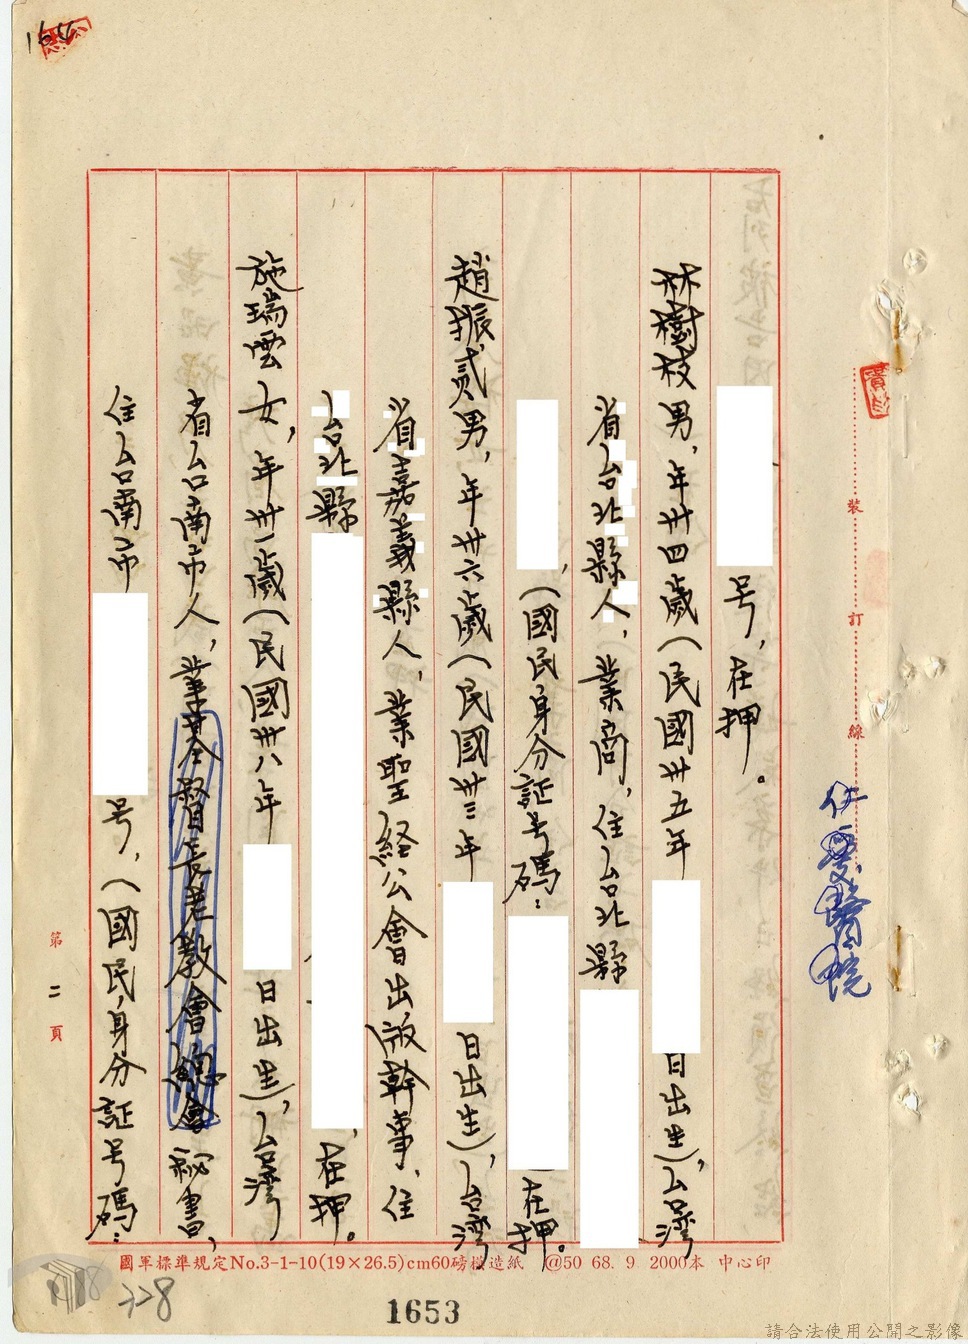 号，在押。
林樹枝 男，年卅四歲（民國卅五年 日出生），台灣
省台北縣人，業商，住台北縣
，（國民身分証号碼： 在押。
趙振貳 男，年卅六歲（民國卅三年 日出生），台灣
省嘉義縣人，業聖経公會出版幹事，住
台北縣 ，在押。
施瑞雲 女，年卅一歲（民國卅八年 日出生），台灣
省台南市人，業基督長老教會總會秘書，
住台南市 号，（國民身分証号碼：
裝 訂 線
第二頁
國軍標準規定No.3-1-10(19×26.5)cm60磅模造紙 @50 68. 9. 2000本 中心印
1653
228
請合法使用公開之影像